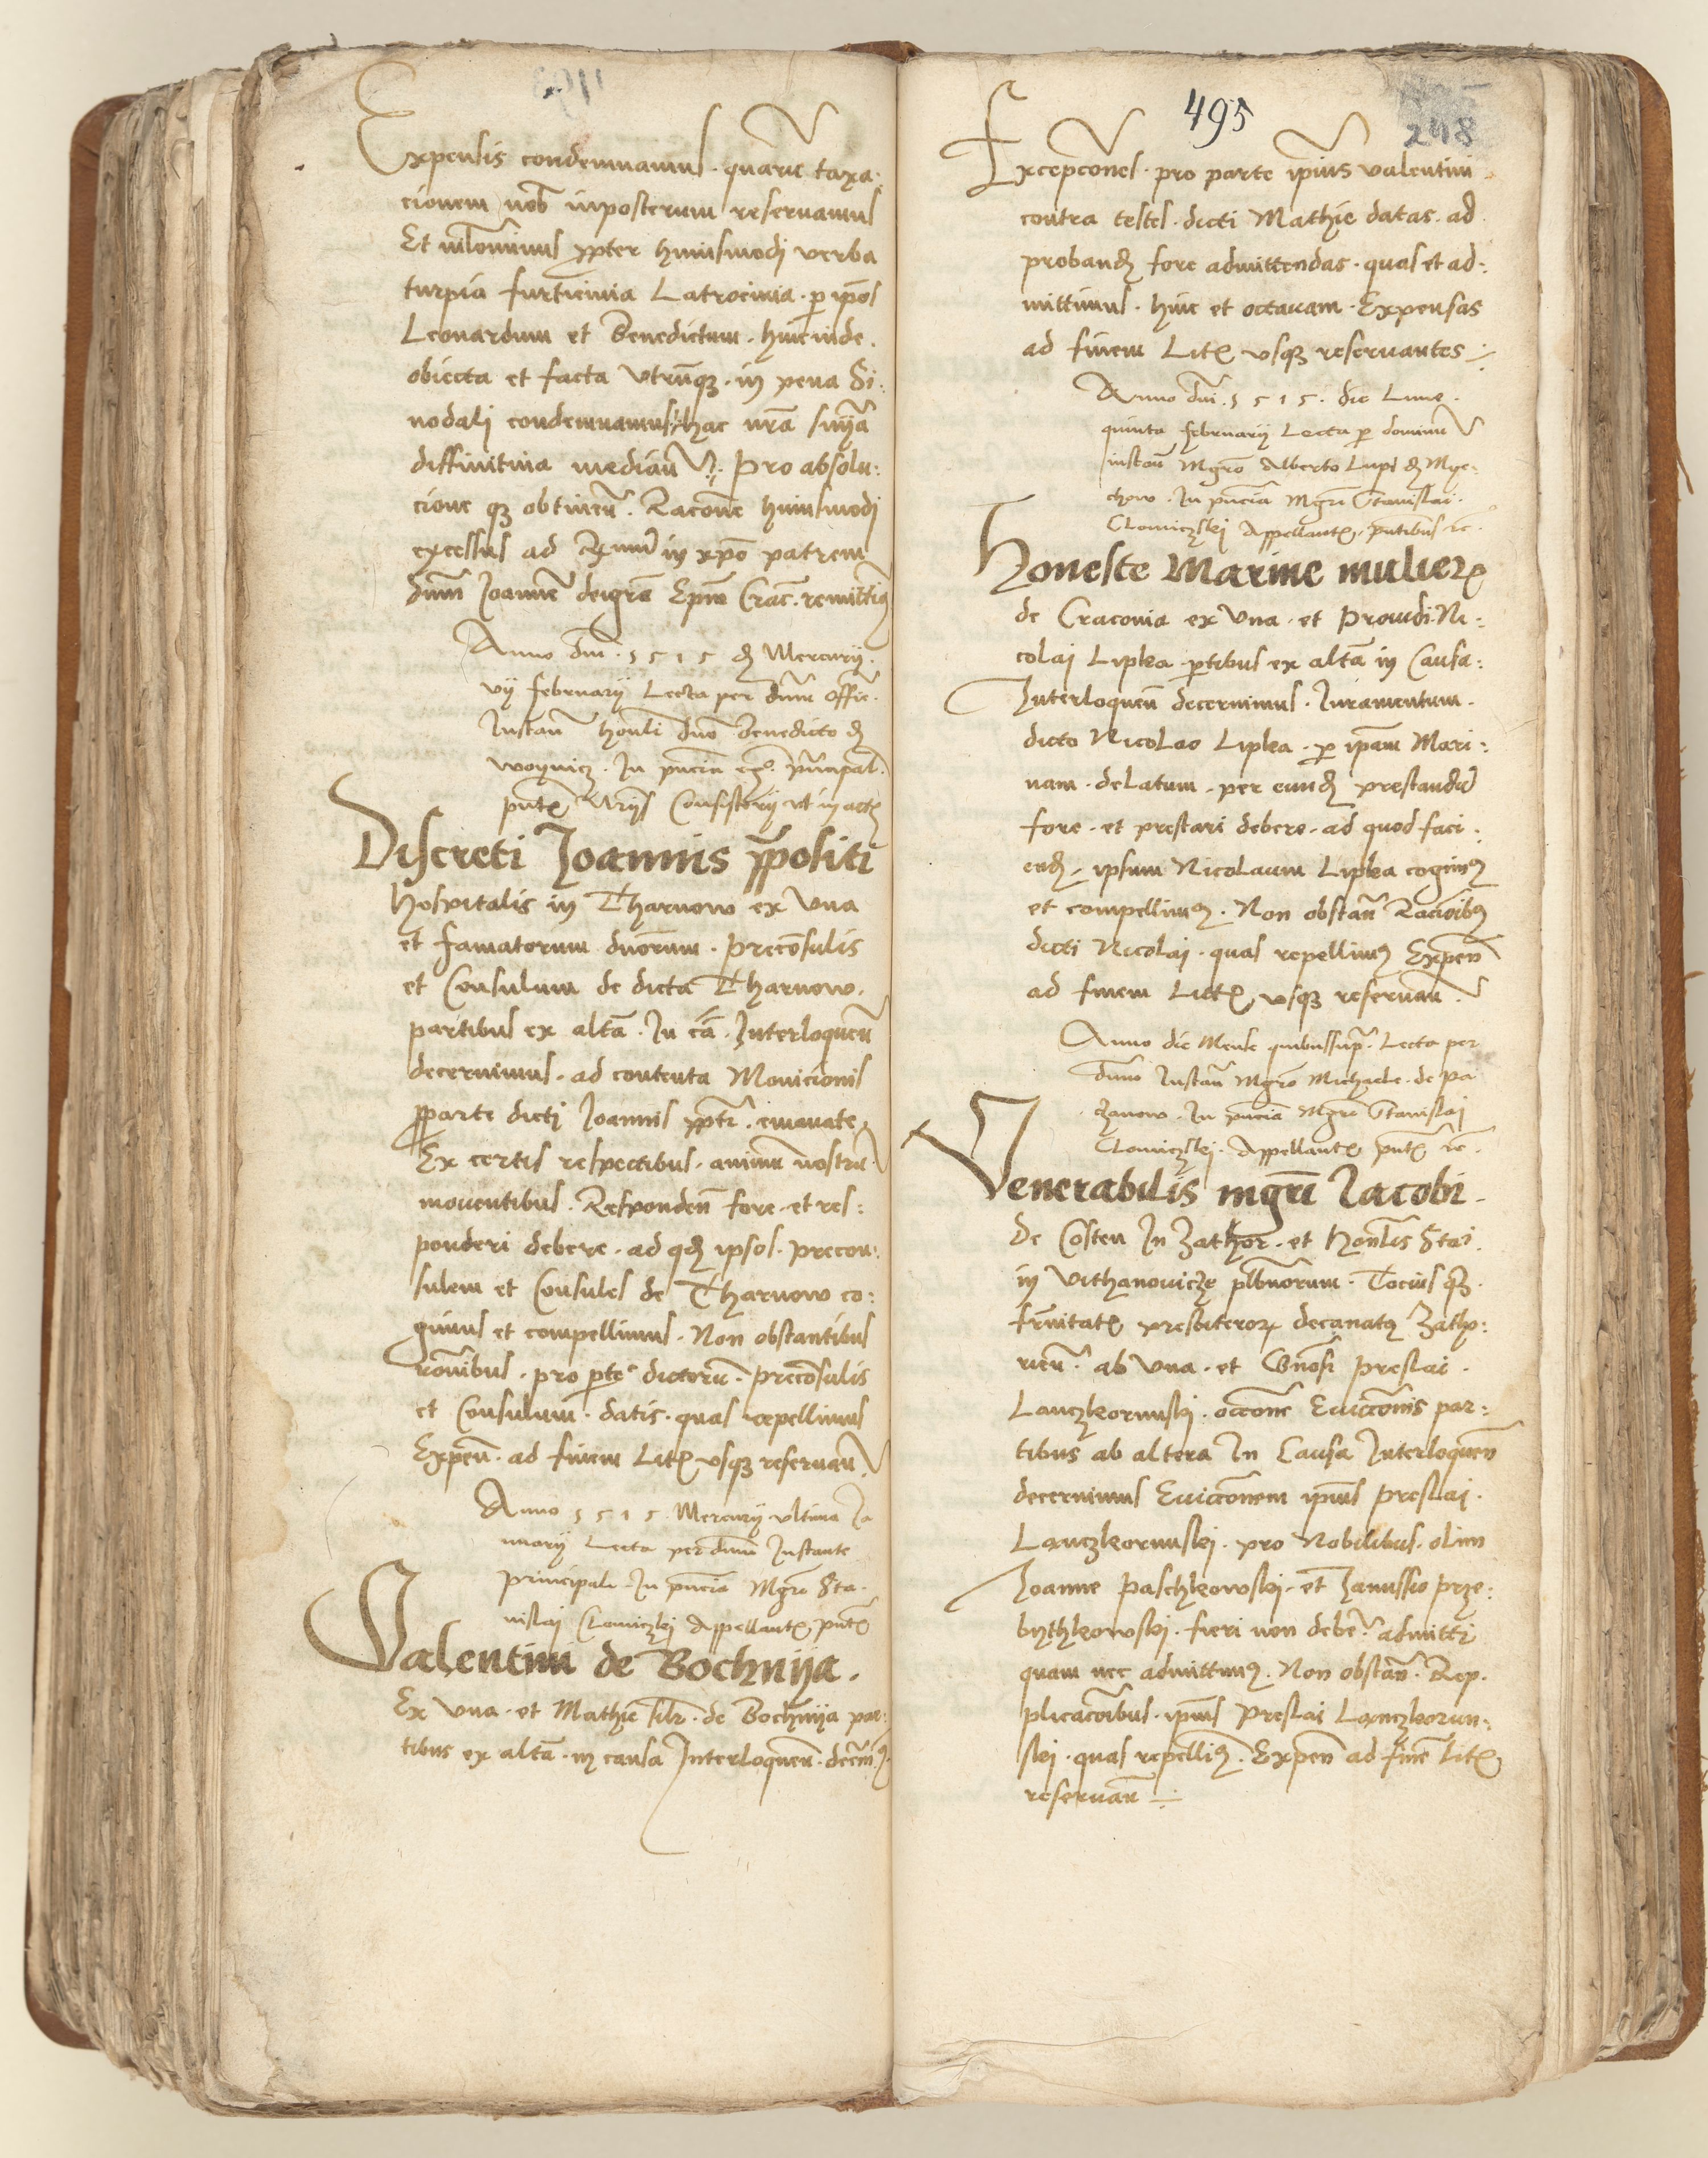 Expensis condemnamus · quarū taxa:
cionem nob inposterum reservamus
Et nīlominus ꝓpter huiusmodj verba
turpia furticinia Latrocinia · p ip̄os
Leonardum et Benedictum · hincinde ·
obiecta et facta Vtrūqȝ · in pena Si:
nodali condemnamus hac nr̄a sn̄ia
diffinitiua median̄ · Pro absolu:
cione qȝ obtinen̄ · Racōne huiusmodj
excessus ad R̄mū in xp̄o patrem
dnm̄ Joannē deigrā Ep̄m Crac̄ · remittimꝰ
Anno dn̄i · 1515 d Mercurij ·
vij februarij Lecta per dnm̄ offic̄ ·
Instan̄ hon̄li dn̄o Benedicto d
woynicz · In pn̄cia principal̄
pn̄te Consistorij vt in actꝭ
Discreti Joannis p̄positi
Hospitalis in Tharnow ex Vna
et famatorum duorum · Precōsulis
et Consulum de dicta Tharnow ·
partibus ex altā · In cā · Interloquen̄
decernimus · ad contenta Monicionis
ꝓparte dictj Joannis · emanate
Ex certis respectibus · animū nostrū
mouentibus · Respondeń fore · et res:
ponderi debere · ad qd ipsos · precon:
sulem et Consules de Tharnow co:
gimus et compellimus · Non obstantibus
rōnibus · pro pte dictorū · Precōsulis
et Consulum · datis · quas repellimus
Expen̄ · ad finem Litꝭ vsqȝ reservan̄
Anno 1515 · Mercurij vltima Ja
nuarij Lecta per dnm̄ Instante
principali · In pn̄cia Mgrī Sta ·
nislaj Clomiczkj Appellantꝭ pn̄tꝭ
Valentini de Bochnija ·
Ex Vna · et Mathie · de Bochnija par:
tibus ex altā · in causa Interloquen̄ · decernimꝰ
495
248
Excepcōnes · pro parte ip̄ius valentini
contra testes · dicti Mathie datas · ad
proband fore admittendas · quas et ad:
mittimus · hinc et octauam · Expensas
ad finem Litꝭ vsqȝ reservantes
Anno dn̄i · 1515 · die Lune ·
quinta februarij Lecta p dominū
instan̄ Mgrō Alberto Lupi d Mye:
chow · In pn̄cia Mgrī Stanislai ·
Clomiczskj Appellantꝭ, pn̄tibus rc ·
Honeste Marine mulierꝭ
de Cracouia ex Vna · et Prouidi Ni:
colaj Lipka · ptibus ex altā in Causa:
Interloquen̄ decernimus · Juramentum ·
dicto Nicolao Lipka · p ip̄am Mari:
nam · delatum · per eund prestandū
fore · et prestari debere · ad quod faci:
end · ipsum Nicolaum Lipka cogimꝰ
et compellimꝰ · Non obstan̄ Racōibꝰ
dicti Nicolaj · quas repellimꝰ Expen̄
ad finem Littꝭ, vsqȝ reservan̄ ·
Anno die Mense quibussup̄ · Lecta per
dnm̄ Instan̄ Mgrō Michaele · de pa
czanow · In pn̄cia Mgrī Stanislaj
Clomiczskj · Appellantꝭ pn̄tꝭ rc ·
Venerabilis mgrī Jacobi ·
De Costen In Zathor · et Hon̄lis Stai ·
in Vithanouicze plb̄norum · Tocius qȝ ·
fr̄nitatꝭ presbiterorꝝ decanatꝰ Zatho:
rien̄ · ab Vna · et Gn̄osi Preslai ·
Lanczkorunskj · occōne Euiccōnis par:
tibus ab altera In Causa Interloquen̄
decernimus Euiccōnem ip̄ius Preslaj ·
Lanczkorunskj · pro Nobilibus · olim
Joanne Paschkowskj · et Janussio Prze:
bythkowskj · fieri non debere admittj
quam nec admittimꝰ · Non obstan̄ · Rep ·
plicacōibus · ip̄ius Preslai Lanczkorun:
skj · quas repellimꝰ · Expen̄ ad finē Litꝭ,
reservan̄